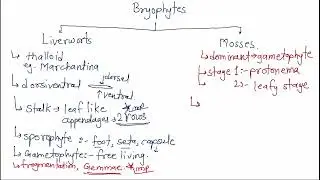 Bryophytes
Liverworts
↳ thalloid
eg- Marchantina
↳ dorsiventral
dorsal
ventral
↳ Stalk → leaf like
appendages → 2 rows
*imp
↳ sporophyte :- foot, seta, capsule
↳ Gametophyte:- free living.
↳ fragmentation, Gemmae *imp
Mosses
↳ dominant → gametophyte
↳ stage 1:- protonema
2:- leafy stage
↳